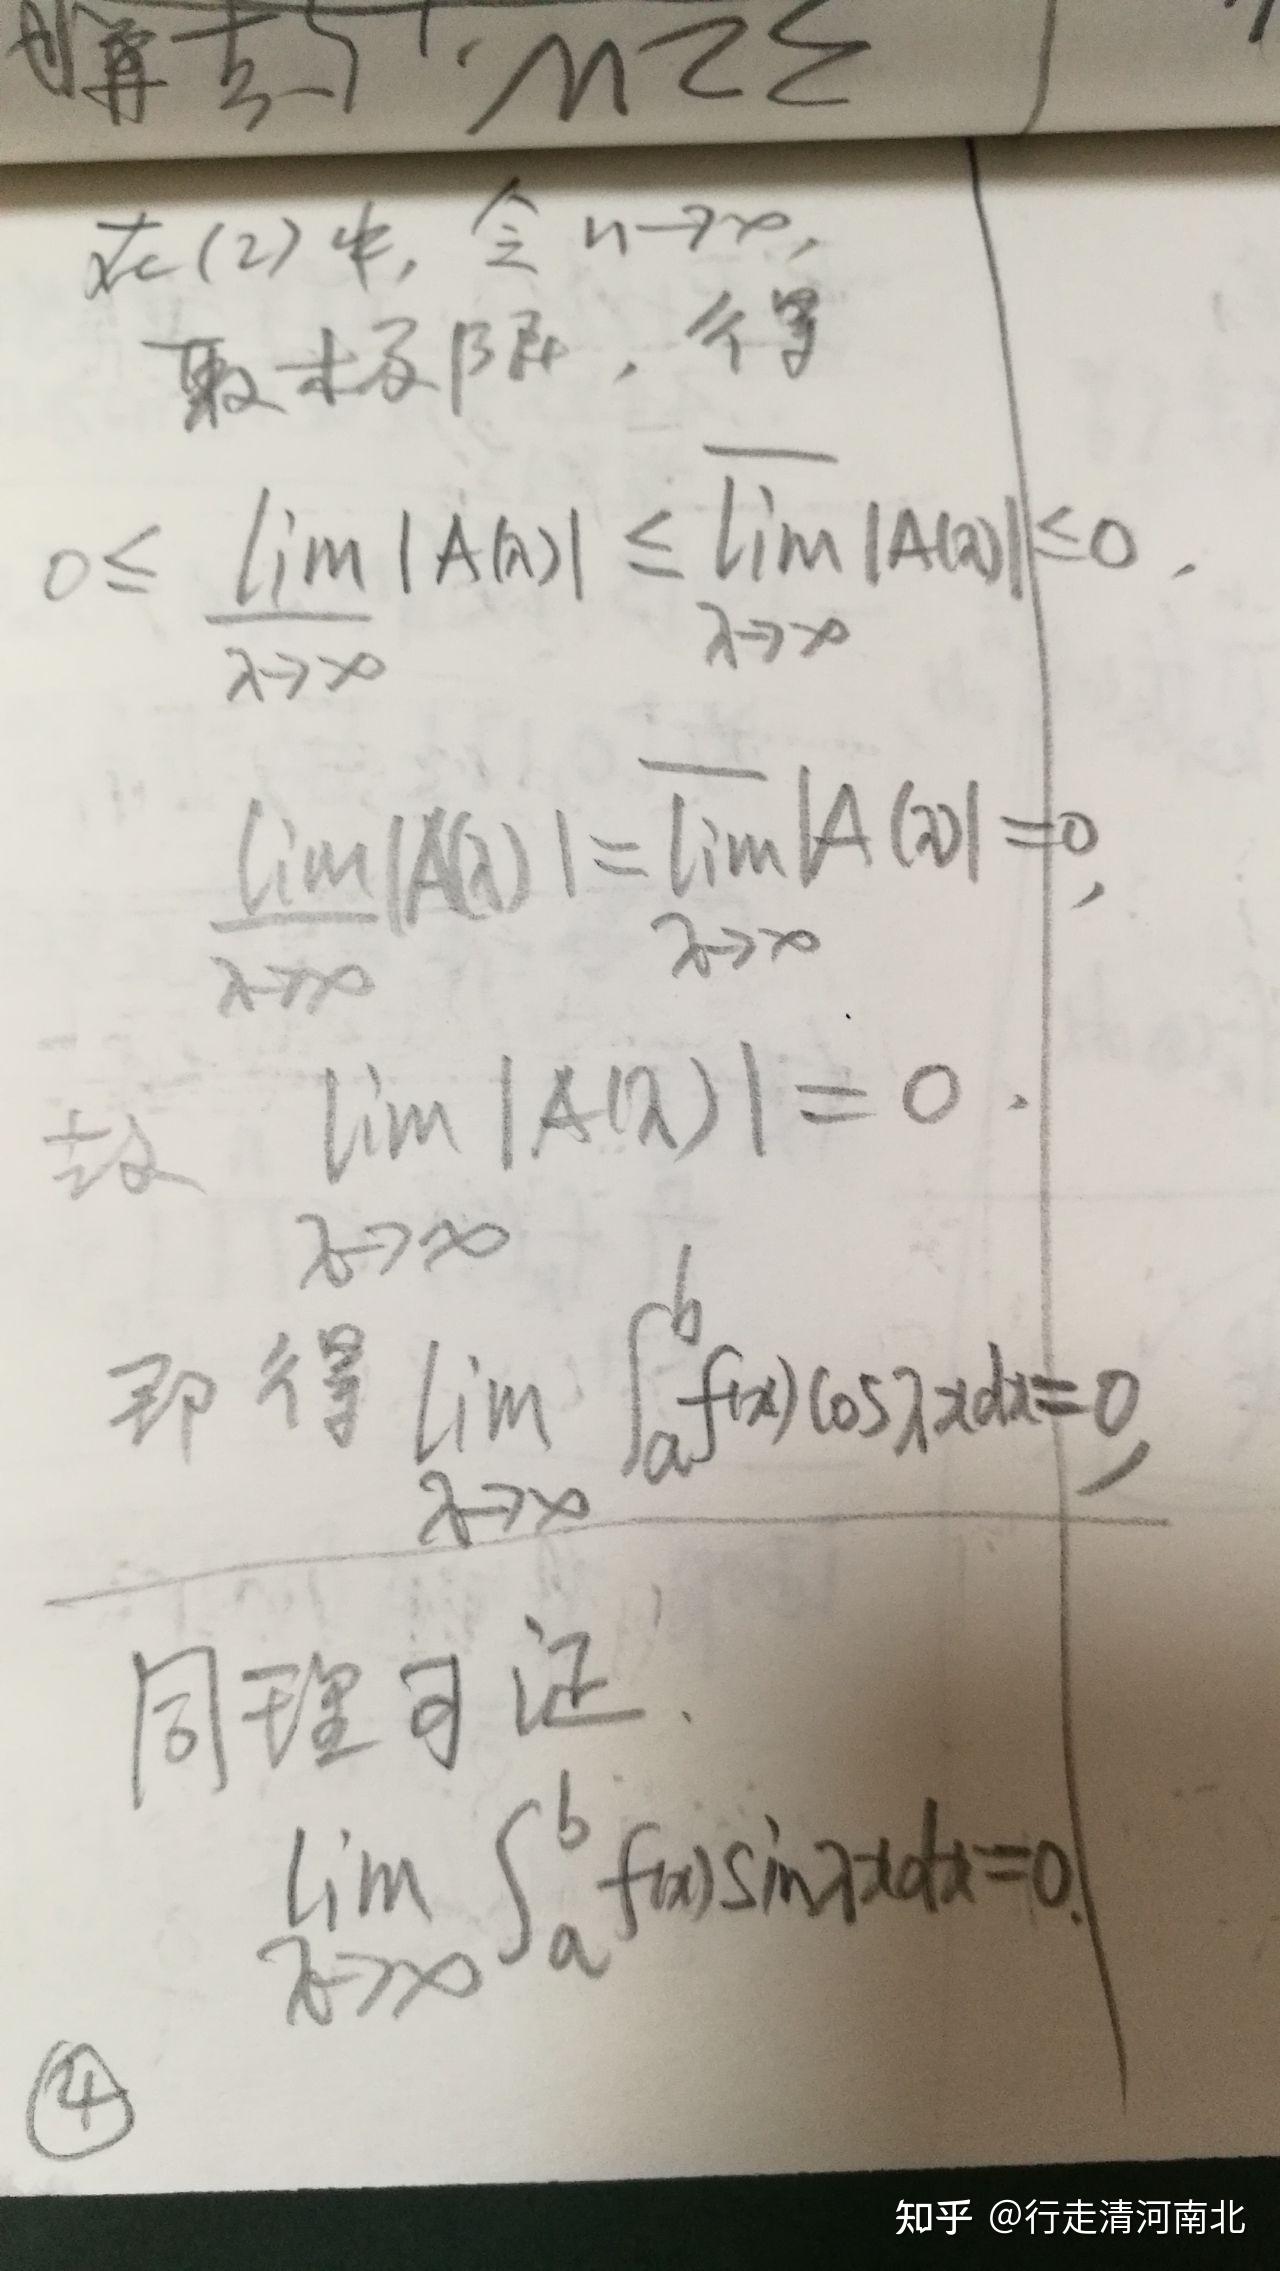 在(2)中,令 n→∞,
取极限,得
0≤ \underline{lim}_{λ→∞} |A(λ)| ≤ \overline{lim}_{λ→∞} |A(λ)| ≤0.
\underline{lim}_{λ→∞} |A(λ)| = \overline{lim}_{λ→∞} |A(λ)| =0,
故 lim_{λ→∞} |A(λ)| = 0.
即得 lim_{λ→∞} ∫_a^b f(x)cosλxdx=0,
同理可证.
lim_{λ→∞} ∫_a^b f(x)sinλxdx=0.
④
知乎 @行走清河南北